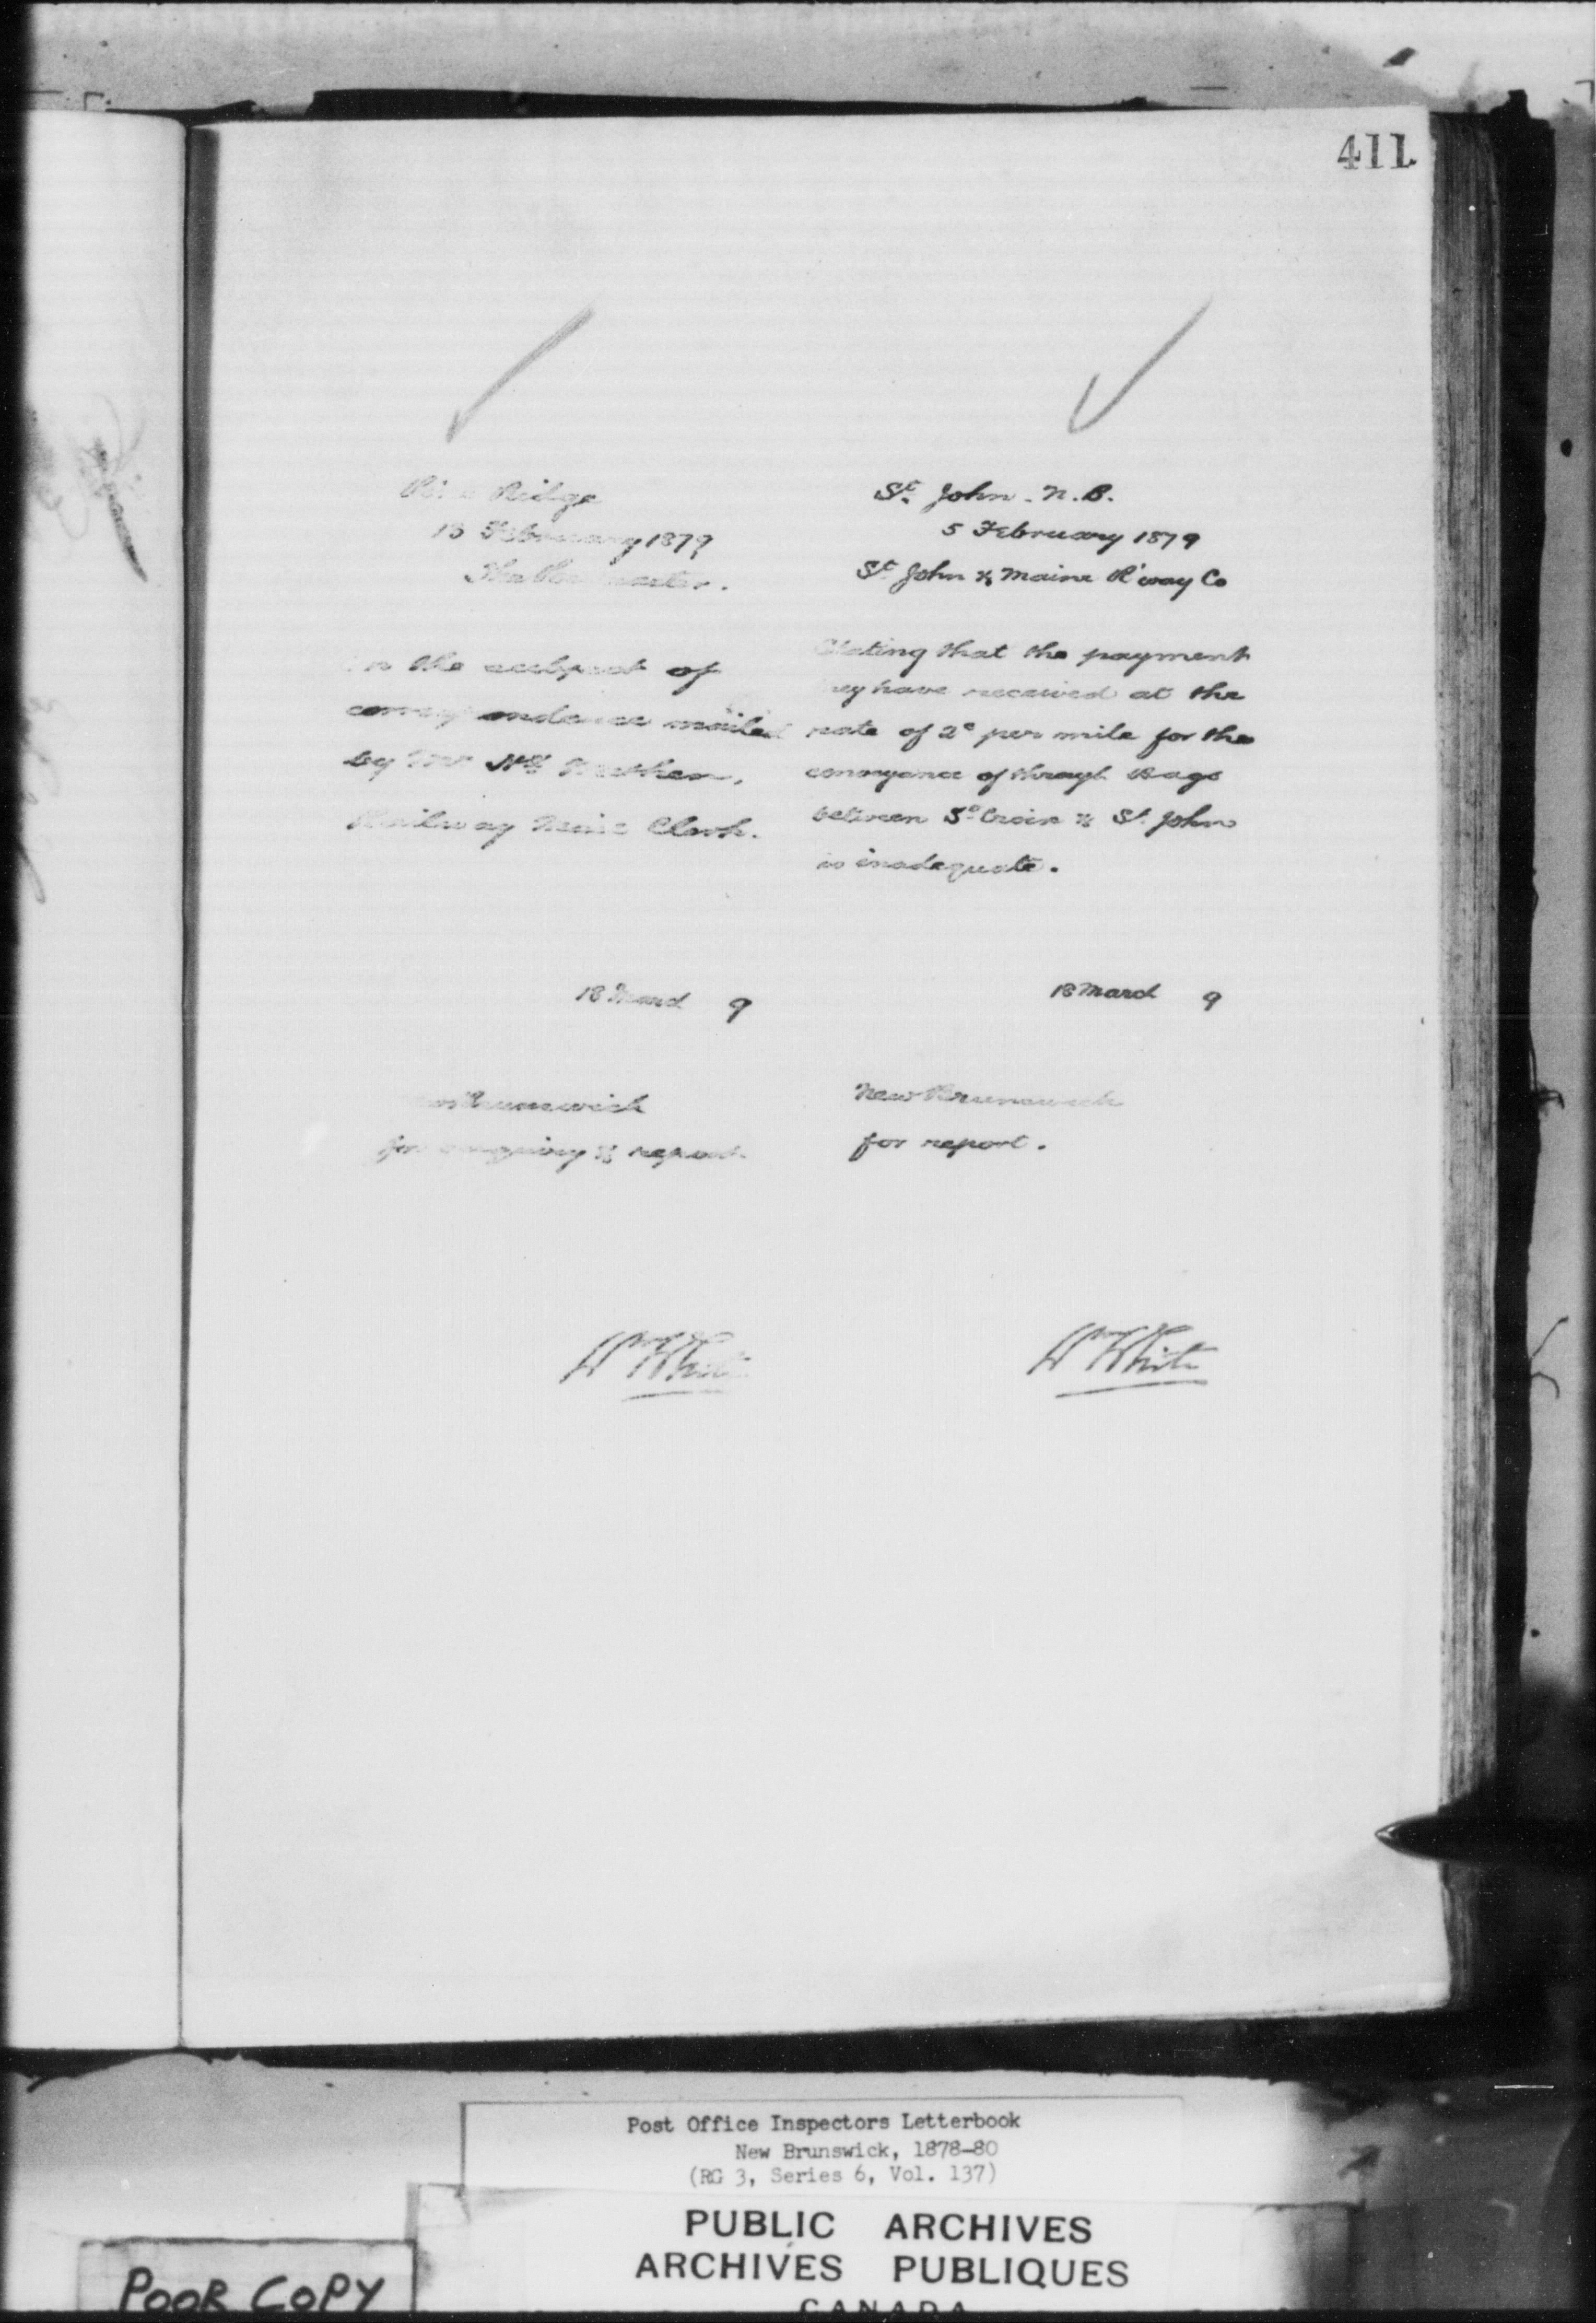 411
Ridge
13 February 1879
The Postmaster.
the subject of
correspondence mailed
by Mr
Railway Mail Clerk.
18 March 9
New Brunswick
for enquiry & report
Wm White
St. John. N.B.
5 February 1879
St John & Maine R'way Co
Stating that the payment
they have received at the
rate of 2c per mile for the
conveyance of through Bags
between St. Croix & St. John
is inadequate.
18 March 9
New Brunswick
for report.
Wm White
Post Office Inspectors Letterbook
New Brunswick, 1878-80
(RG 3, Series 6, Vol. 137)
PUBLIC ARCHIVES
ARCHIVES PUBLIQUES
CANADA
POOR COPY